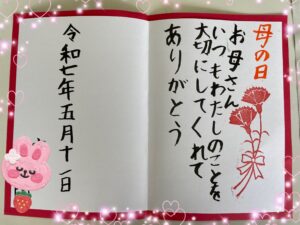 母の日
お母さん
いつもわたしのことを
大切にしてくれて
ありがとう
令和七年五月十一日